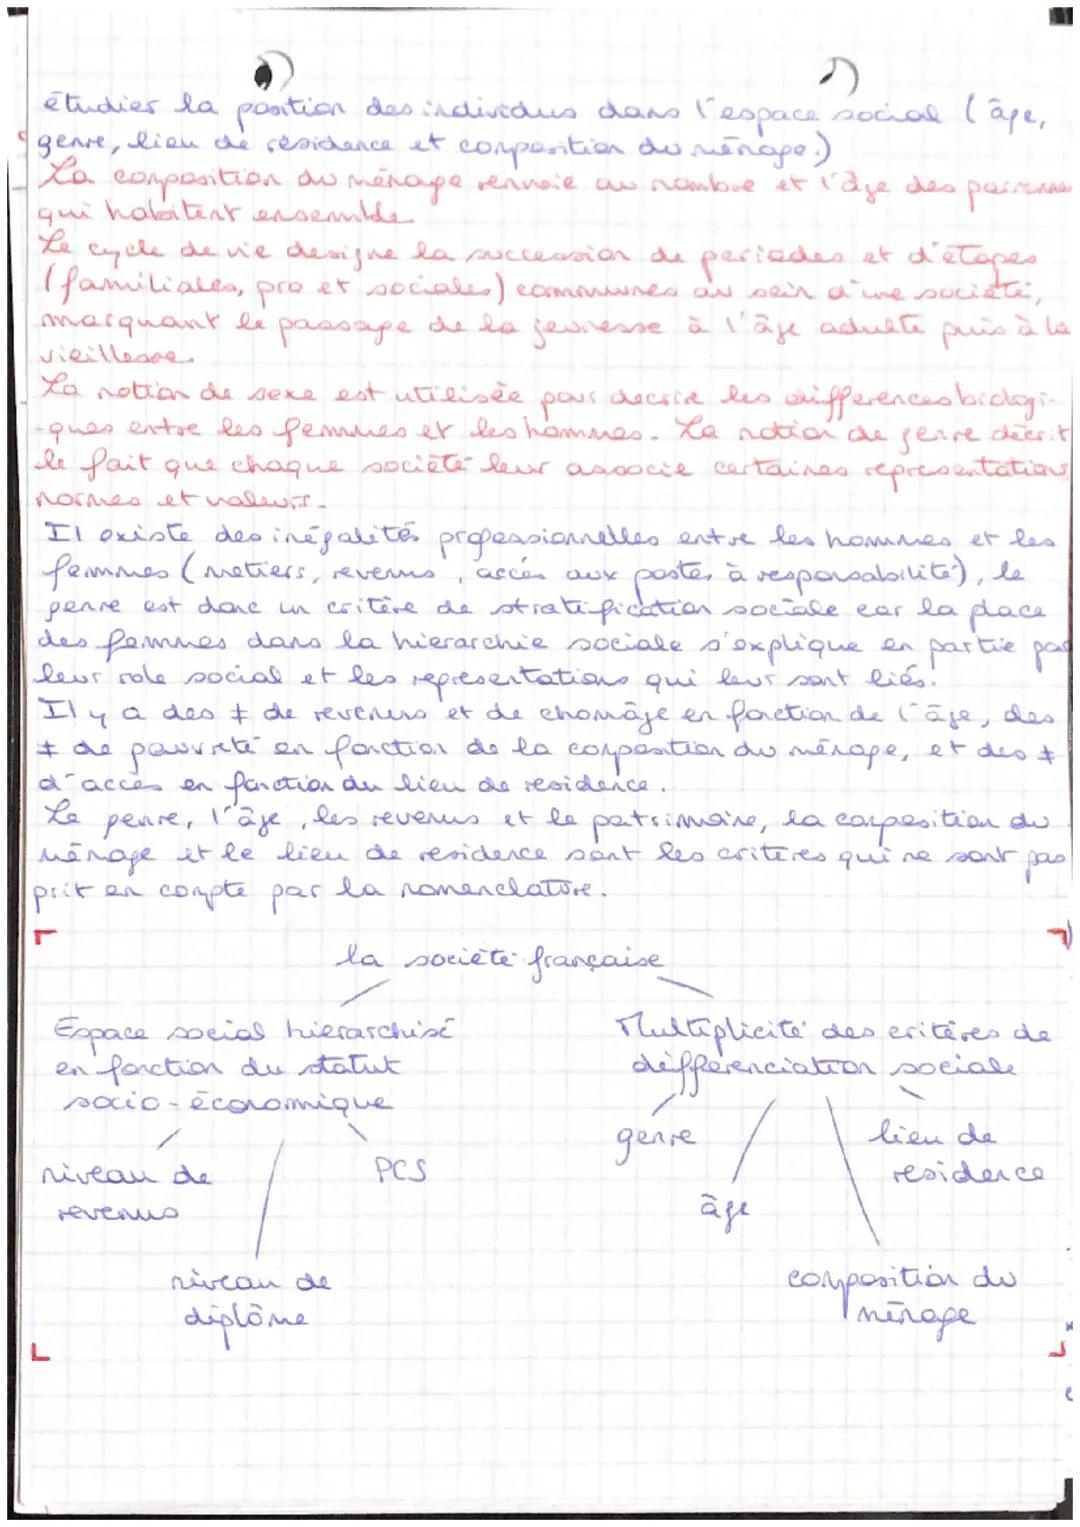 étudier la position des individus dans l'espace social (âge,
genre, lieu de résidence et composition du ménage.)
La composition du ménage renvoie au nombre et l'âge des personnes
qui habitent ensemble
Le cycle de vie designe la succession de periodes et d'étapes
(familiales, pro et sociales) communes au sein d'une société,
marquant le passage de la jeunesse à l'âge adulte puis à la
vieillesse.
La notion de sexe est utilisée pour decrire les differences biologi-
-ques entre les femmes et les hommes. La notion de genre décrit
le fait que chaque société leur associe certaines représentations
normes et valeurs.
Il existe des inégalités professionnelles entre les hommes et les
femmes (metiers, revenus, accès aux postes à responsabilité), le
genre est donc un critère de stratification sociale car la place
des femmes dans la hierarchie sociale s'explique en partie par
leur role social et les représentations qui leur sont liés.
Il y a des ≠ de revenus et de chomâge en fonction de l'âge, des
≠ de pauvreté en fonction de la composition du ménage, et des ≠
d'accès en fonction du lieu de residence.
Le genre, l'âge, les revenus et le patrimoine, la composition du
ménage et le lieu de residence sont les critères qui ne sont pas
prit en compte par la nomenclature.
la société française
Espace social hierarchisé
en fonction du statut
socio-économique
Multiplicité des critères de
différenciation sociale
genre
lieu de
residence
niveau de
revenus
PCS
âge
niveau de
diplôme
composition du
ménage